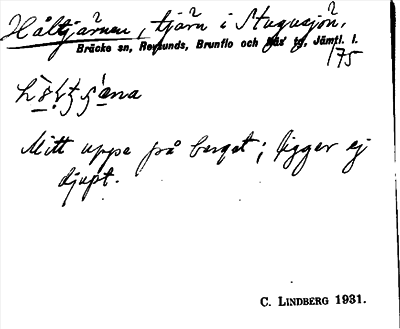 Håltjärnen, tjärn i Stugusjön,
Bräcke sn, Revsunds, Brunflo och Näs' tg, Jämtl. l.
175
Mitt uppe på berget; ligger ej
djupt.
C. LINDBERG 1931.